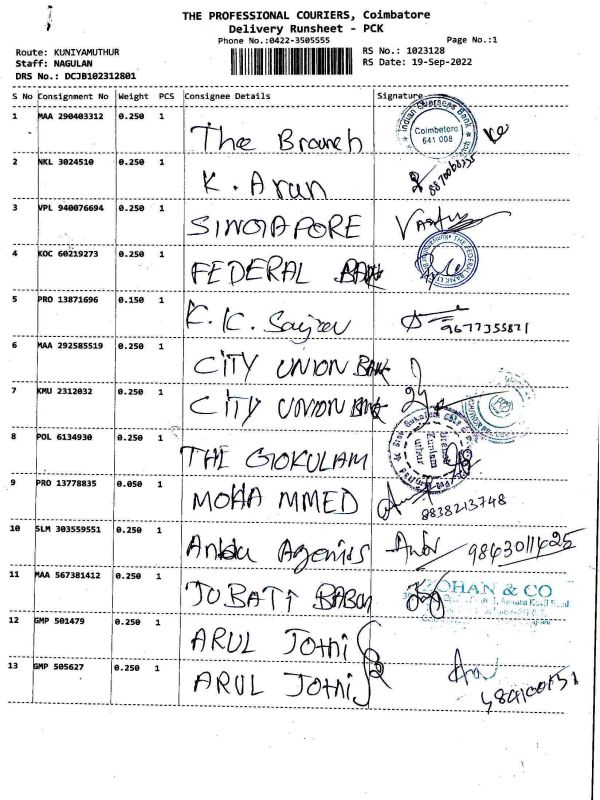 THE PROFESSIONAL COURIERS, Coimbatore
Delivery Runsheet - PCK
Phone No.:0422-3505555 Page No.:1
Route: KUNIYAMUTHUR RS No.: 1023128
Staff: NAGULAN RS Date: 19-Sep-2022
DRS No.: DCJB102312801
S No Consignment No Weight PCS Consignee Details Signature
1 MAA 290403312 0.250 1 The Branch
Indian Overseas Bank
Coimbatore
641 008
2 NKL 3024510 0.250 1 K. Arun
3 VPL 940076694 0.250 1 SINGAPORE
4 KOC 60219273 0.250 1 FEDERAL BANK
THE FEDERAL BANK LTD
5 PRO 13871696 0.150 1 K.K. 9677355871
6 MAA 292585519 0.250 1 CITY UNION BANK
7 KMU 2312032 0.250 1 CITY UNION BANK
8 POL 6134930 0.250 1 THE GOKULAM
9 PRO 13778835 0.050 1 MOHAMMED 8838213748
10 SLM 303559551 0.250 1 Anbu Agencies Anbu 9843011425
11 MAA 567381412 0.250 1 JUBATI BABU
OHAN & CO
12 GMP 501479 0.250 1 ARUL Jothi
13 GMP 505627 0.250 1 ARUL Jothi